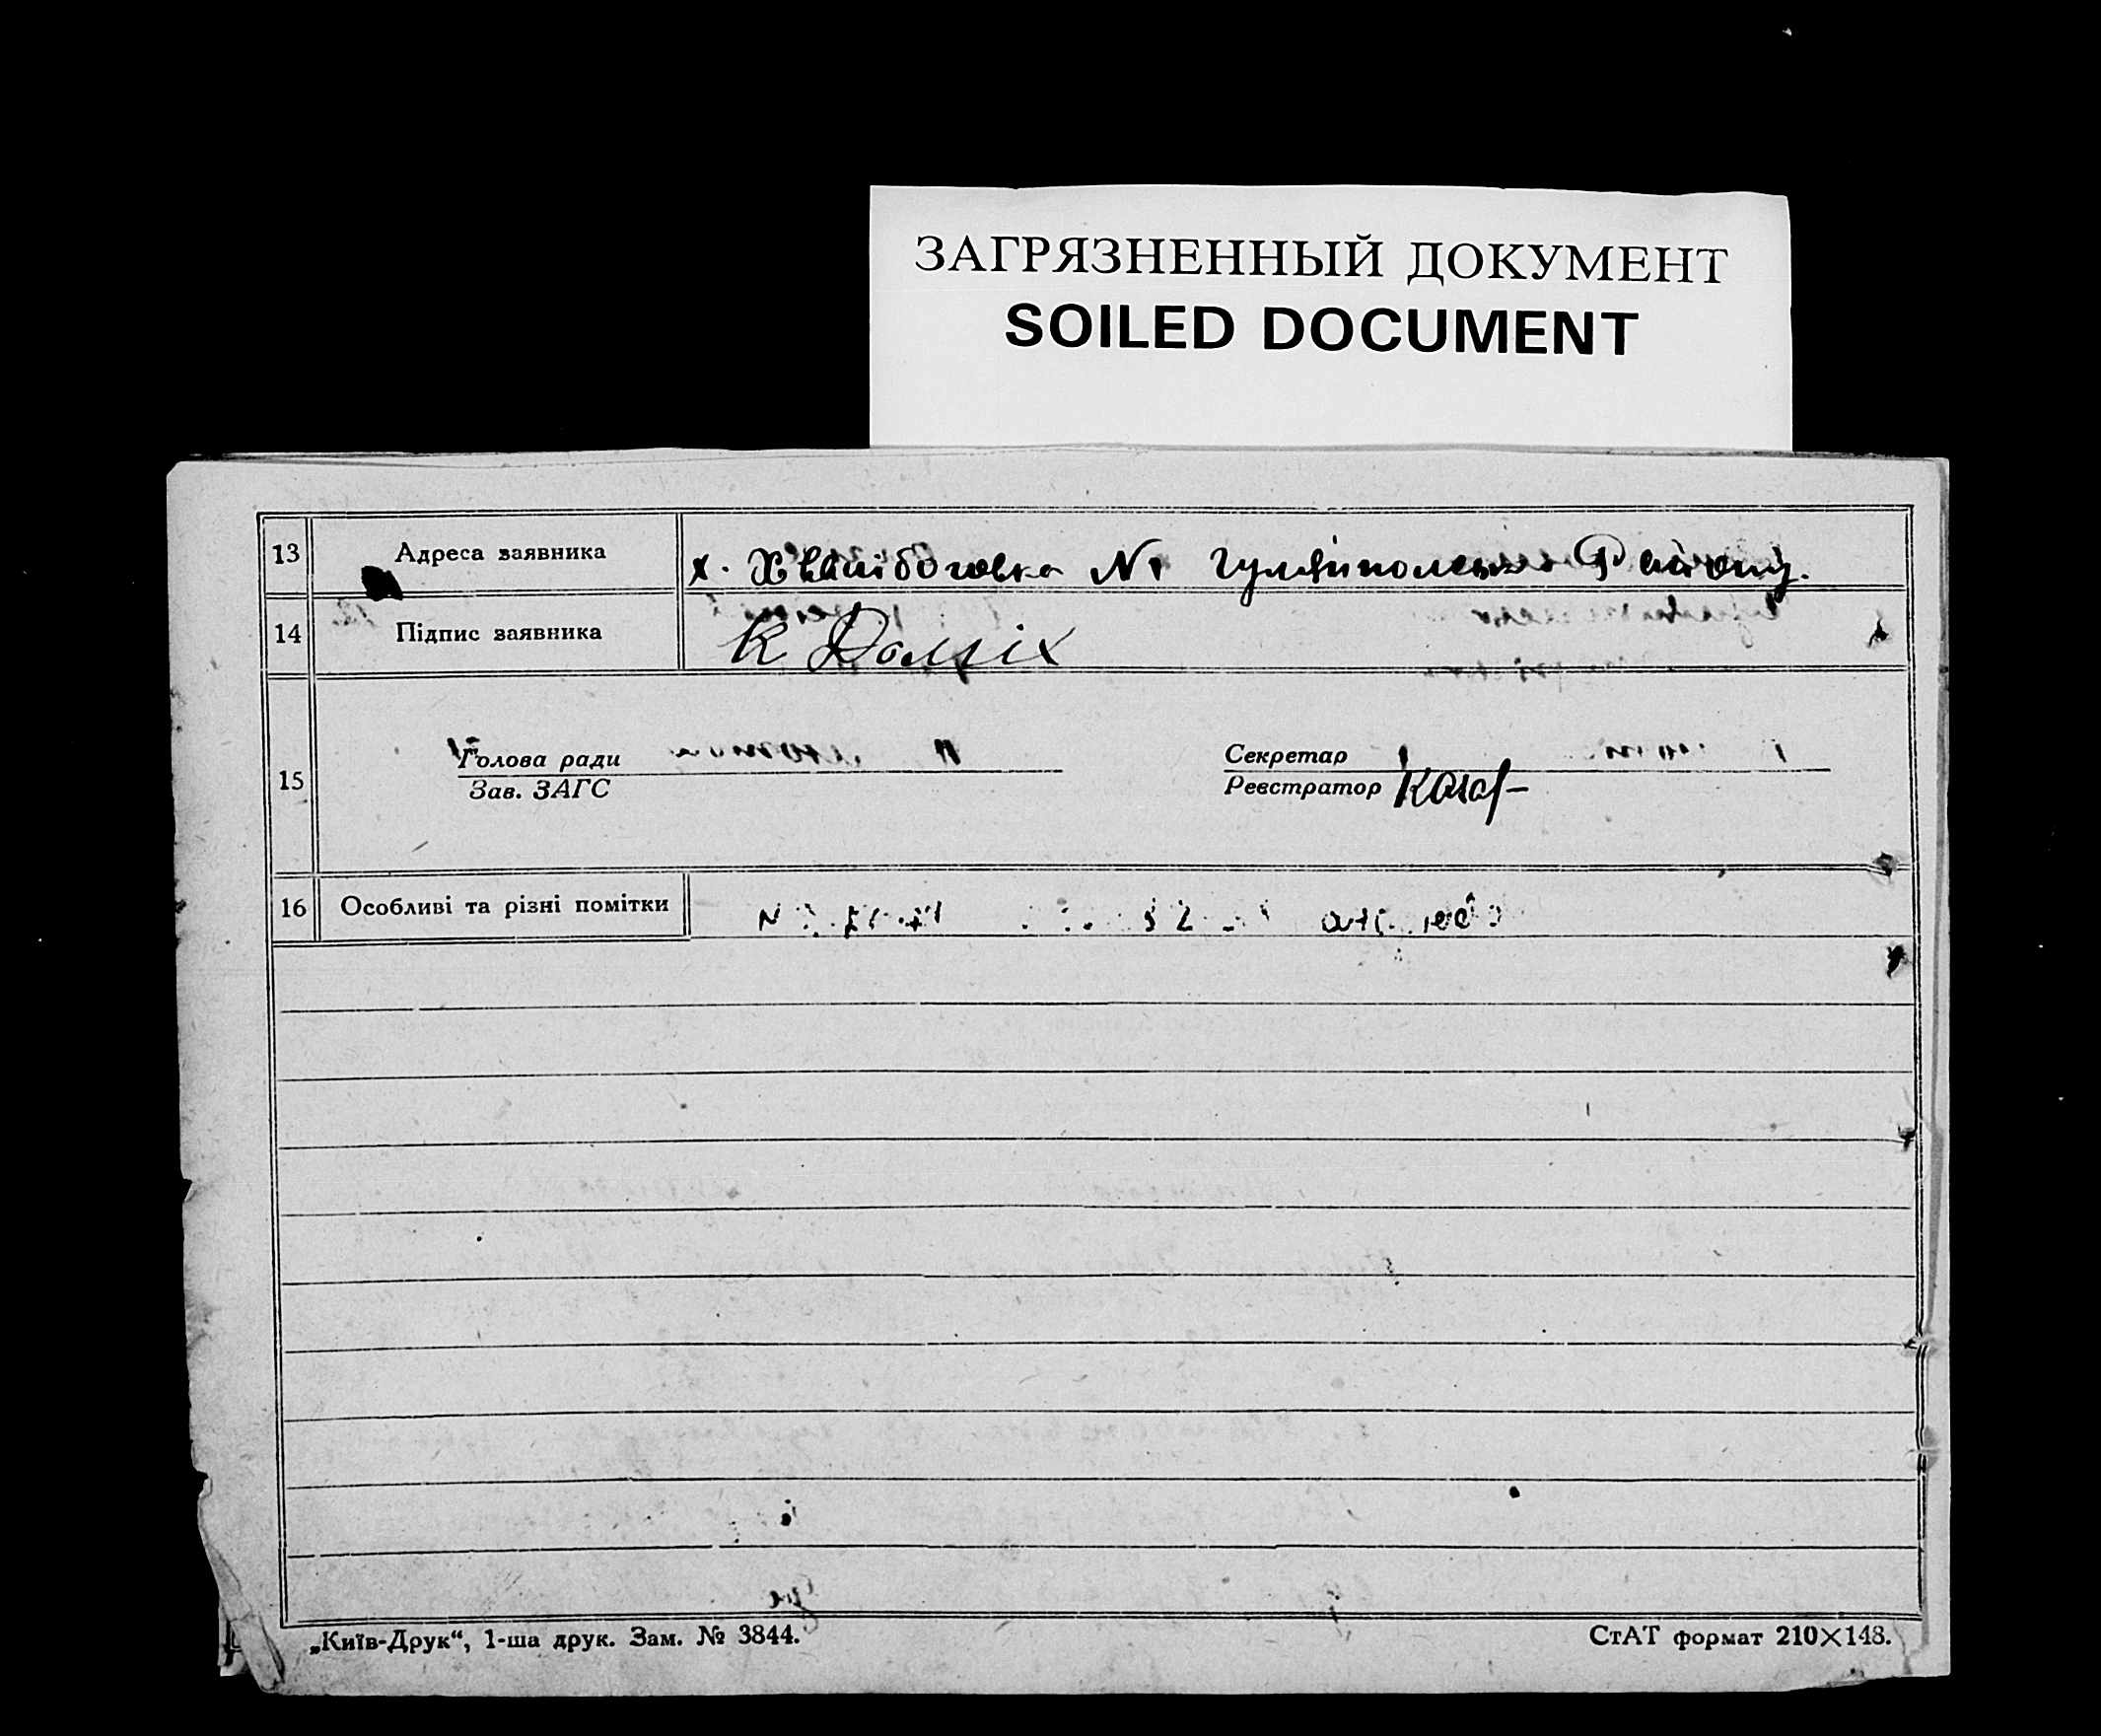 ЗАГРЯЗНЕННЫЙ ДОКУМЕНТ
SOILED DOCUMENT
13 Адреса заявника х. Хвалибоговка №1 Гуляйпольск Району.
14 Підпис заявника К
15 Голова ради
Зав. ЗАГС
Секретар
Реєстратор
16 Особливі та різні помітки
„Київ-Друк“, 1-ша друк. Зам. № 3844.
СтАТ формат 210×148.